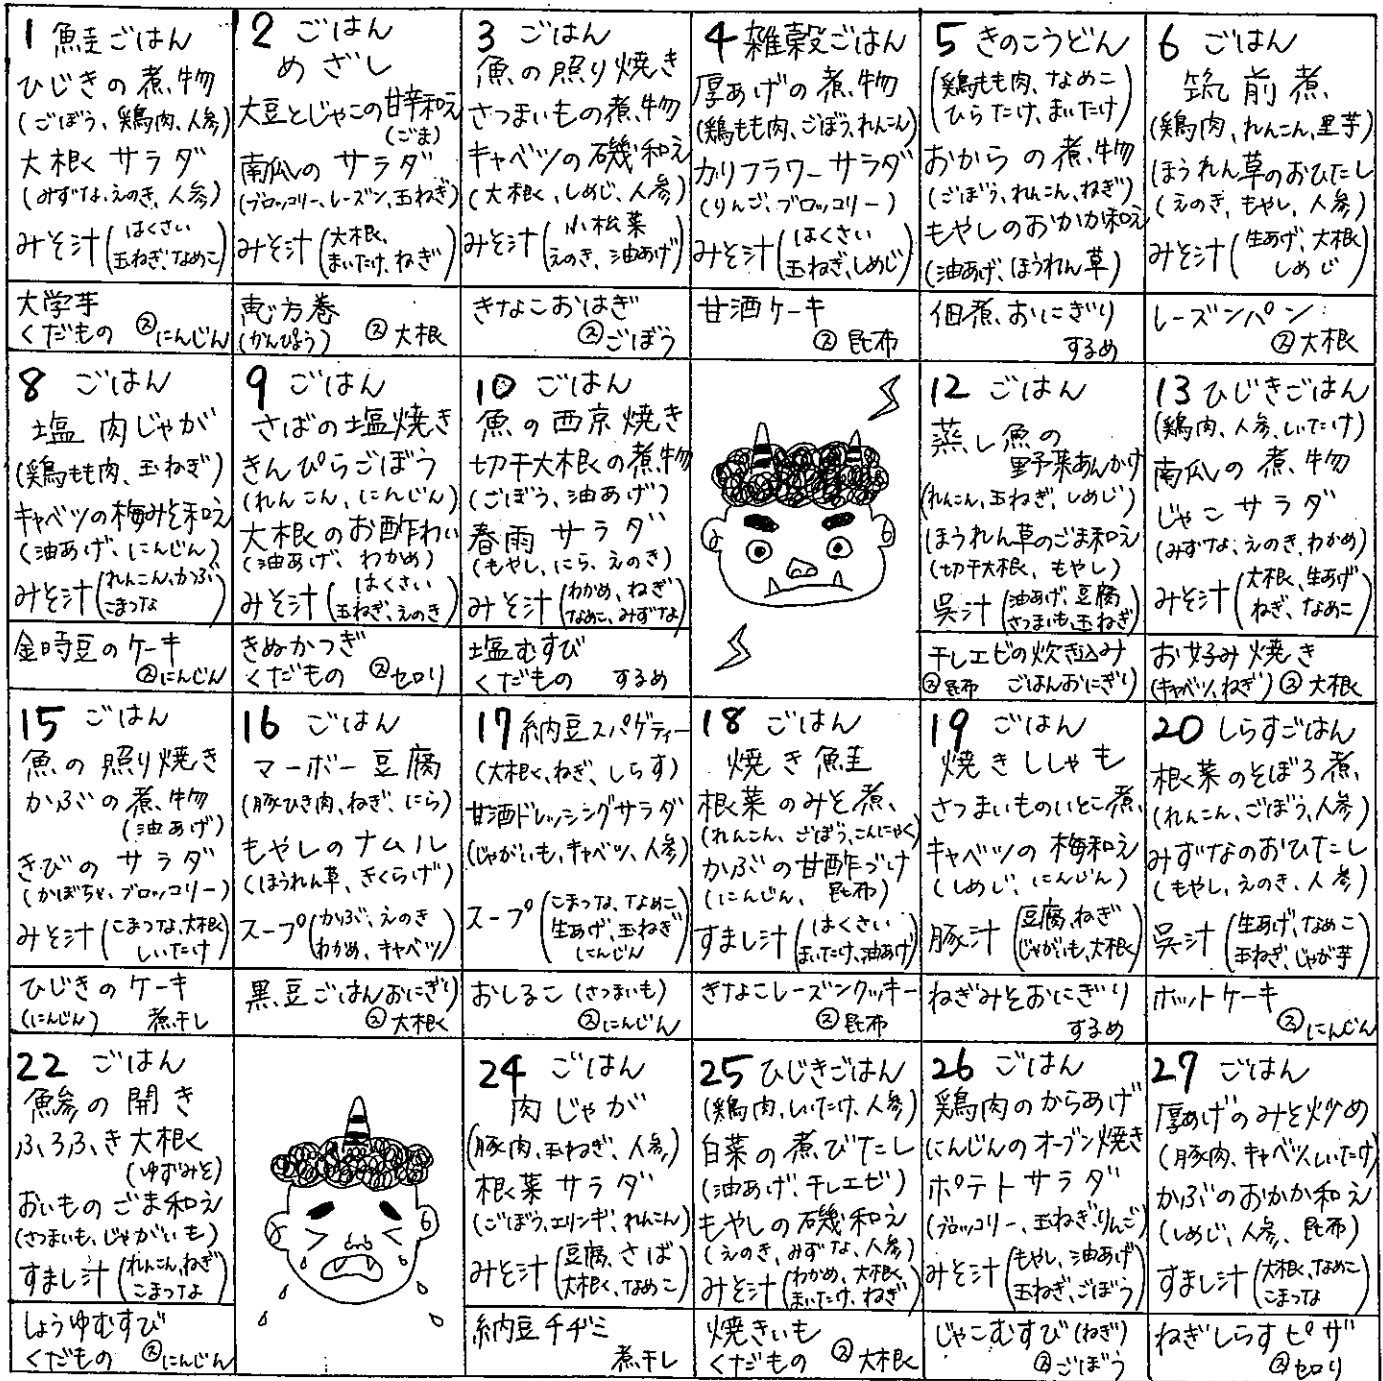 1 鮭ごはん
ひじきの煮物
(ごぼう、鶏肉、人参)
大根サラダ
(みずな、えのき、人参)
みそ汁(はくさい
玉ねぎ、なめこ)
大学芋
くだもの ㋜にんじん
2 ごはん
めざし
大豆とじゃこの甘辛和え
(ごま)
南瓜のサラダ
(ブロッコリー、レーズン、玉ねぎ)
みそ汁(大根、
まいたけ、ねぎ)
恵方巻
(かんぴょう) ㋜大根
3 ごはん
魚の照り焼き
さつまいもの煮物
キャベツの磯和え
(大根、しめじ、人参)
みそ汁(小松菜
えのき、油あげ)
きなこおはぎ
㋜ごぼう
4 雑穀ごはん
厚あげの煮物
(鶏もも肉、ごぼう、れんこん)
カリフラワーサラダ
(りんご、ブロッコリー)
みそ汁(はくさい
玉ねぎ、しめじ)
甘酒ケーキ
㋜昆布
5 きのこうどん
(鶏もも肉、なめこ
ひらたけ、まいたけ)
おからの煮物
(ごぼう、れんこん、ねぎ)
もやしのおかか和え
(油あげ、ほうれん草)
佃煮おにぎり
するめ
6 ごはん
筑前煮
(鶏肉、れんこん、里芋)
ほうれん草のおひたし
(えのき、もやし、人参)
みそ汁(生あげ、大根
しめじ)
レーズンパン
㋜大根
8 ごはん
塩肉じゃが
(鶏もも肉、玉ねぎ)
キャベツの梅みそ和え
(油あげ、にんじん)
みそ汁(れんこん、かぶ
こまつな)
金時豆のケーキ
㋜にんじん
9 ごはん
さばの塩焼き
きんぴらごぼう
(れんこん、にんじん)
大根のお酢わい
(油あげ、わかめ)
みそ汁(はくさい
玉ねぎ、えのき)
きぬかつぎ
くだもの ㋜セロリ
10 ごはん
魚の西京焼き
切干大根の煮物
(ごぼう、油あげ)
春雨サラダ
(もやし、にら、えのき)
みそ汁(わかめ、ねぎ
なめこ、みずな)
塩むすび
くだもの するめ
12 ごはん
蒸し魚の
野菜あんかけ
(れんこん、玉ねぎ、しめじ)
ほうれん草のごま和え
(切干大根、もやし)
呉汁(油あげ、豆腐
さつまいも、玉ねぎ)
干しエビの炊き込み
㋜昆布 ごはんおにぎり
13 ひじきごはん
(鶏肉、人参、しいたけ)
南瓜の煮物
じゃこサラダ
(みずな、えのき、わかめ)
みそ汁(大根、生あげ
ねぎ、なめこ)
お好み焼き
(キャベツ、ねぎ) ㋜大根
15 ごはん
魚の照り焼き
かぶの煮物
(油あげ)
きびのサラダ
(かぼちゃ、ブロッコリー)
みそ汁(こまつな、大根
しいたけ)
ひじきのケーキ
(にんじん) 煮干し
16 ごはん
マーボー豆腐
(豚ひき肉、ねぎ、にら)
もやしのナムル
(ほうれん草、きくらげ)
スープ(かぶ、えのき
わかめ、キャベツ)
黒豆ごはんおにぎり
㋜大根
17 納豆スパゲティー
(大根、ねぎ、しらす)
甘酒ドレッシングサラダ
(じゃがいも、キャベツ、人参)
スープ(こまつな、なめこ
生あげ、玉ねぎ
にんじん)
おしるこ (さつまいも)
㋜にんじん
18 ごはん
焼き鮭
根菜のみそ煮
(れんこん、ごぼう、こんにゃく)
かぶの甘酢づけ
(にんじん、昆布)
すまし汁(はくさい
まいたけ、油あげ)
きなこレーズンクッキー
㋜昆布
19 ごはん
焼きししゃも
さつまいものいとこ煮
キャベツの梅和え
(しめじ、にんじん)
豚汁(豆腐、ねぎ
じゃがいも、大根)
ねぎみそおにぎり
するめ
20 しらすごはん
根菜のそぼろ煮
(れんこん、ごぼう、人参)
みずなのおひたし
(もやし、えのき、人参)
呉汁(生あげ、なめこ
玉ねぎ、じゃが芋)
ホットケーキ
㋜にんじん
22 ごはん
鯵の開き
ふろふき大根
(ゆずみそ)
おいものごま和え
(さつまいも、じゃがいも)
すまし汁(れんこん、ねぎ
こまつな)
しょうゆむすび
くだもの ㋜にんじん
24 ごはん
肉じゃが
(豚肉、玉ねぎ、人参)
根菜サラダ
(ごぼう、エリンギ、れんこん)
みそ汁(豆腐、さば
大根、なめこ)
納豆チヂミ
煮干し
25 ひじきごはん
(鶏肉、しいたけ、人参)
白菜の煮びたし
(油あげ、干しエビ)
もやしの磯和え
(えのき、みずな、人参)
みそ汁(わかめ、大根、
まいたけ、ねぎ)
焼きいも
くだもの ㋜大根
26 ごはん
鶏肉のからあげ
にんじんのオーブン焼き
ポテトサラダ
(ブロッコリー、玉ねぎ、りんご)
みそ汁(もやし、油あげ
玉ねぎ、ごぼう)
じゃこむすび(ねぎ)
㋜ごぼう
27 ごはん
厚あげのみそ炒め
(豚肉、キャベツ、しいたけ)
かぶのおかか和え
(しめじ、人参、昆布)
すまし汁(大根、なめこ
こまつな)
ねぎしらすピザ
㋜セロリ